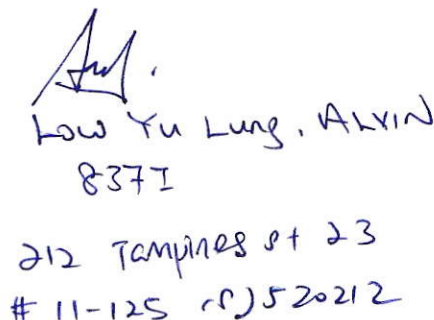 Low Yu Lung, ALVIN
837I
212 Tampines st 23
# 11-125 (S) 520212